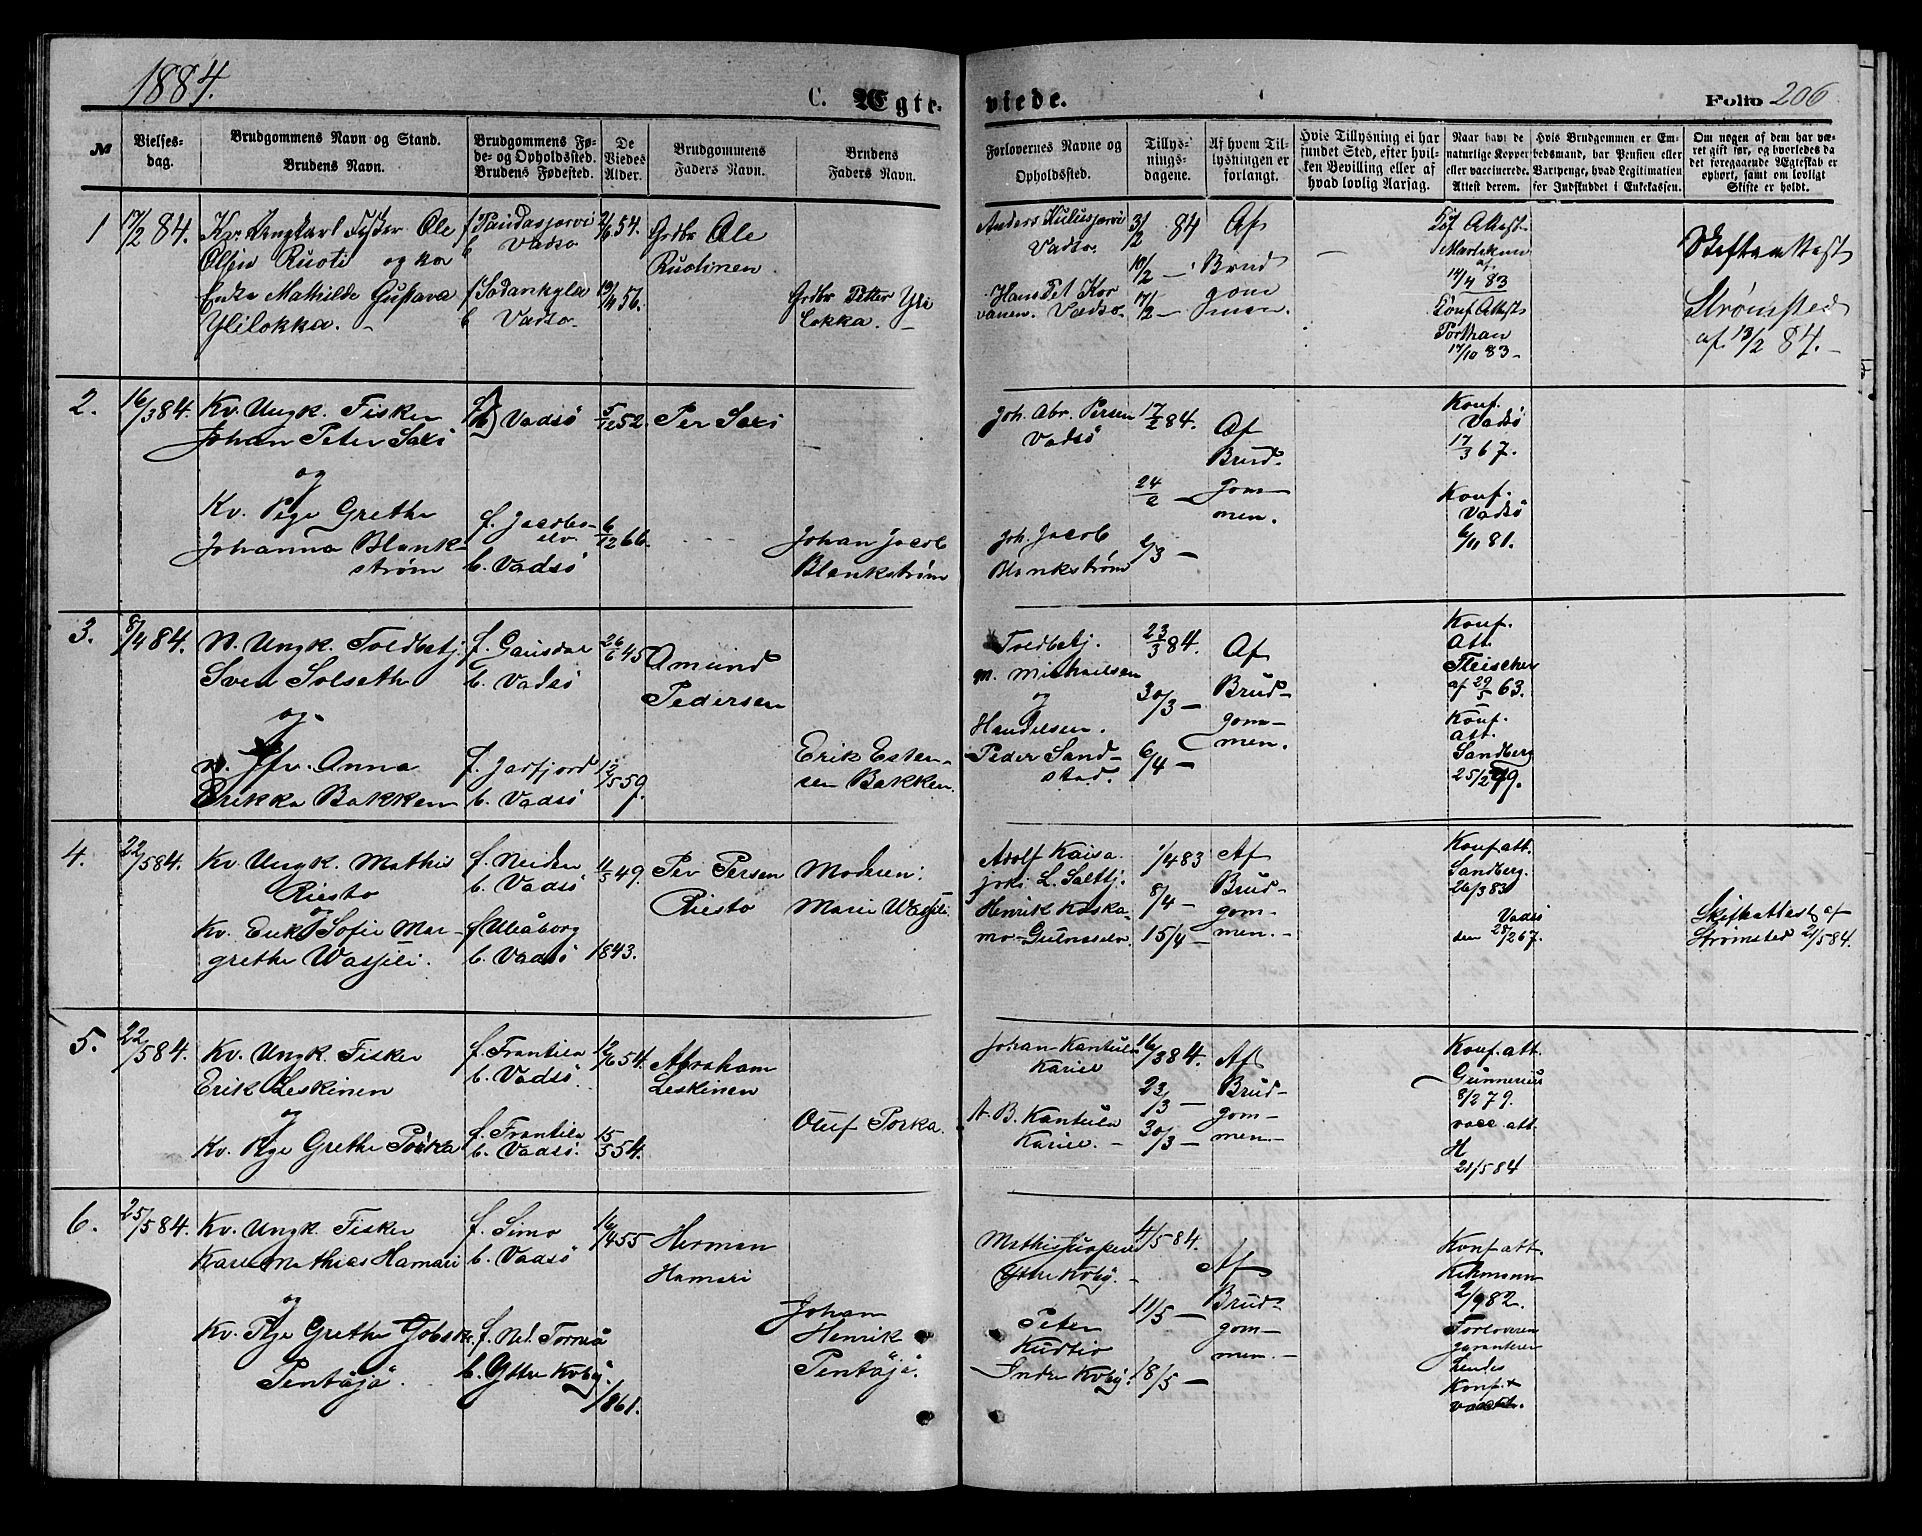 1884.
C. Ægte-
viede.
Folio 206
№
Vielses-
dag.
Brudgommens Navn og Stand.
Brudens Navn.
Brudgommens Fø-
de- og Opholdssted.
Brudens Fødested.
De
Viedes
Alder.
Brudgommens
Faders Navn.
Brudens
Faders Navn.
Forlovernes Navne og
Opholdssted.
Tillys-
nings-
dagene.
Af hvem Til-
lysningen er
forlangt.
Hvis Tillysning ei har
fundet Sted, efter hvil-
ken Bevilling eller af
hvad lovlig Aarsag.
Naar havt de
naturlige Kopper
eller vaccinerede.
Attest derom.
Hvis Brudgommen er Em-
bedsmand, har Pension eller
Vartpenge, hvad Legitimation
for Indskuddet i Enkekassen.
Om nogen af dem har væ-
ret gift før, og hvorledes da
det foregaaende Ægteskab er
ophørt, samt om lovligt
Skifte er holdt.
1
17/2 84.
Kv. Ungkarl Fisker Ole
Olsen Ruoti og Kv
Enke Mathilde Gustava
Ylilokka.
b Vadsø
f Sodankyla
b Vadsø
54.
19/4 56.
Grdbr Ole
Ruotinen
Grdbr Petter Yli
Lokka.
Anders Kulusjærvi
Vadsø.
Hans Pet Kor
vanen. Vadsø
3/2 84
10/2 -
17/2 -
Af
Brud
gom
men.
Martikuin
af
14/4 83
Attest
Porthan
17/10 83
Skifteattest
Strømsted
af 13/2 84.
2.
16/3 84.
Kv. Ungk. Fisker
Johan Peter Sari
og
Kv. Pige Grethe
Johanna Blank-
strøm
Vadsö
f. Jacobs-
elv
b. Vadsö
5/12 52.
6/12 66.
Per Sari
Johan Jacob
Blankstrøm
Joh. Abr. Persen
Vadsö
Joh. Jacob
Blankstrøm
17/2 84.
24/2 -
2/3 -
Af
Brud-
gom-
men.
Konf.
Vadsö
17/3 67.
Konf.
Vadsö
6/11 81.
3.
8/4 84.
N. Ungk. Toldbetj.
Sven Solseth
og
N. Jfr. Anna
Erikka Bakken
f. Gausdal
b. Vadsö
f. Jarfjord
b. Vadsö
26/6 45
13/5 59.
Amund
Pedersen
Erik Esten-
sen Bakken.
Toldbetj.
M. Michaelsen
og
Handelsm.
Peder Sand-
stad.
23/3 84.
30/3 -
6/4 -
Af
Brud-
gom-
men.
Konf.
Att.
Fleischer
af 29/5 63.
Konf.
Att.
Sandberg
25/2 79.
4.
22/5 84.
Kv. Ungk. Mathis
Riesto
og
Kv. Enke Sofie Mar-
grethe Wasjeli.
f. Neiden
b. Vadsö
f Uleåborg
b. Vadsö
11/5 49.
1843.
Per Persen
Riesto
Moderen:
Marie Wasjeli.
Adolf Kaisa
joki L. Saltfj.
Henrik Koska-
mo-Gulnæselv.
1/4 83
8/4 -
15/4 -
Af
Brud-
gom-
men.-
Konf att.
Sandberg.
26/3 83
Vadsö
den 28/2 67.
Skifteattest af
Strømsted 21/5 84.
5.
22/5 84.
Kv. Ungk. Fisker
Erik Leskinen
og
Kv. Pige Grethe Porkka
f. Frantila
b. Vadsö.
f. Frantila
b. Vadsö.
12/6 54.
15/5 54.
Abraham
Leskinen
Oluf Porka.
Johan Kantula
Kariel
A. B. Kantula
Kariel.-
16/3 84.
23/3 -
30/3 -
Af
Brud-
gom-
men.-
Konf. att.
Gunnerius
8/2 79.
vacc att.
H
21/5 84
6.
25/5 84.
Kv. Ungk. Fisker
Karl Mathias Hamari
og
Kv. Pige Grethe Jobsdr.
Pentäjä.
f. Simo
b. Vadsö
f. Ned. Torneå
b. Ytre Kvby.
16/4 55
1861.
Herman
Hamari
Johan
Henrik
Pentäjä.
Ytre Kvby.-
Peter
Indre Kvby.
4/5 84.
11/5 -
18/5 -
Af
Brud-
gom-
men.-
Konf att.
Heikmann
2/9 82.
Forloveren
garanterer
hendes
Konf. +
vaccat.